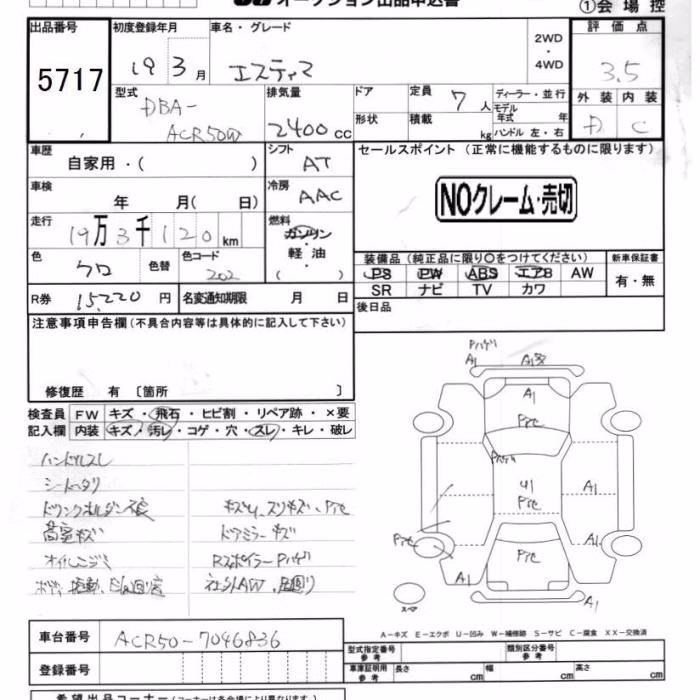 オークション出品申込書
①会場控
出品番号
初度登録年月
車名・グレード
2WD
・
4WD
評価点
5717
19 3月
エスティマ
3.5
型式
排気量
ドア
定員 7人
ディーラー・並行
モデル年式 年
外装 内装
DBA-
ACR50W
2400cc
形状
積載 kg
ハンドル 左・右
D C
車歴
自家用・( )
シフト
AT
セールスポイント (正常に機能するものに限ります)
車検
年 月( 日)
冷房
AAC
NOクレーム・売切
走行
19万3千120km
燃料
ガソリン
・
軽油
( )
色
クロ
色替
色コード
202
装備品 (純正品に限り○をつけてください)
新車保証書
PS PW ABS エアB AW
SR ナビ TV カワ
有・無
R券 15,220円
名変通知期限 月 日
後日品
注意事項申告欄 (不具合内容等は具体的に記入して下さい)
修復歴 有 〔箇所 〕
検査員
記入欄
FW キズ・飛石・ヒビ割・リペア跡・×要
内装 キズ・汚レ・コゲ・穴・スレ・キレ・破レ
ハンドルスレ
シートヘタリ
ドアミラーキズ
RスポイラーPハゲ
社外AW
A1
A1
A1
A1
A1
U1
スペア
A-キズ E-エクボ U-凹み W-補修跡 S-サビ C-腐食 XX-交換済
車台番号 ACR50-7046836
登録番号
型式指定番号
参考
類別区分番号
参考
車庫証明用
参考
長さ cm 幅 cm 高さ cm
希望出品コーナー (コーナーは各会場により異なります)